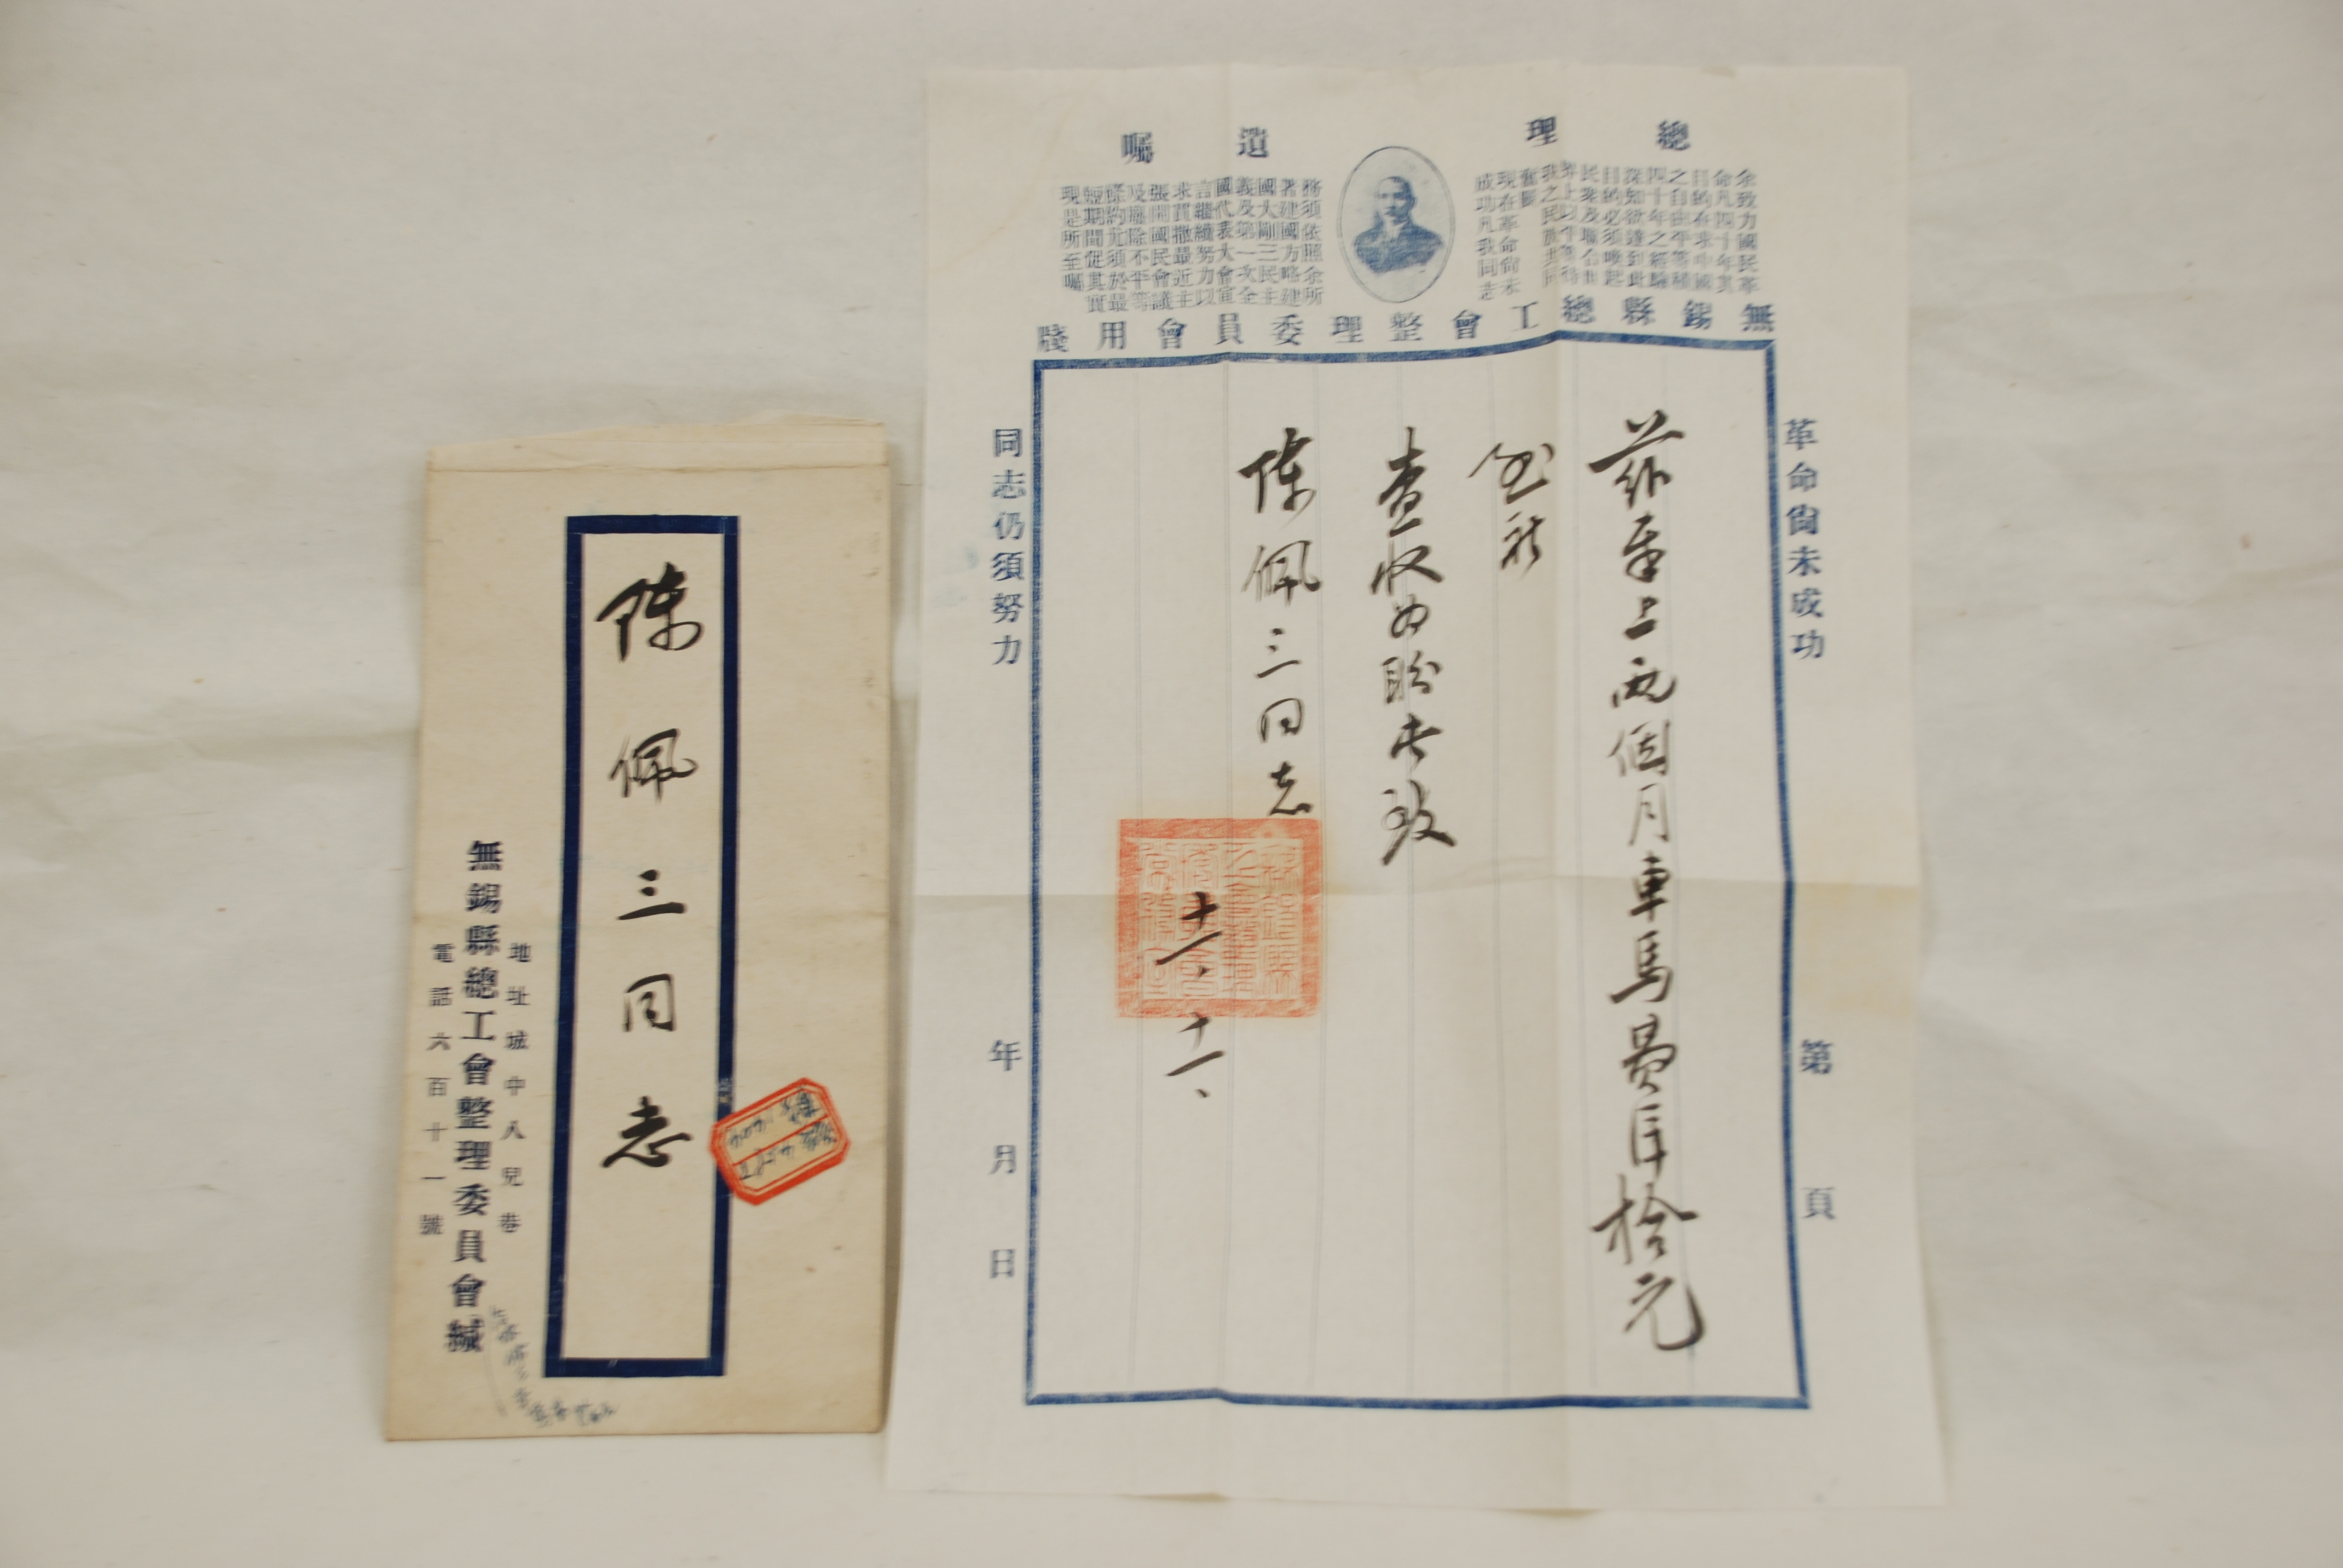 總理遺囑
余致力國民革
命凡四十年其
目的在求中國
之自由平等積
四十年之經驗
深知欲達到此
目的必須喚起
民衆及聯合世
界上以平等待
我之民族共同
奮鬭
現在革命尚未
成功凡我同志
務須依照余所
著建國方略建
國大綱三民主
義及第一次全
國代表大會宣
言繼續努力以
求貫徹最近主
張開國民會議
及廢除不平等
條約尤須於最
短期間促其實
現是所至囑
無錫縣總工會整理委員會用牋
革命尚未成功
第 頁
茲奉上兩個月車馬費
拾元
查收為盼此致
陳佩三同志
十一、十一、
同志仍須努力
年 月 日
陳佩三同志
地址城中八兒巷
無錫縣總工會整理委員會緘
電話六百十一號